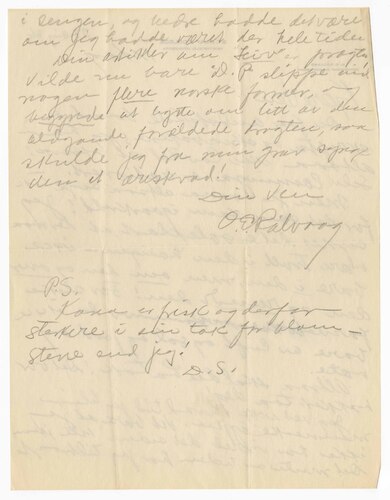 i sengen, og hedre hadde det være
om jeg hadde været der hele tiden
Din artikler om "Liv" er
Vilde nu bare "D. P." slippe ind
nogen flere norske former, og
begynde at bytte om litt av den
forældede drogten, saa
skulde jeg fra min grav synge
den et æreskvad!
Din Ven
O. E. Rölvaag
P.S.
Kona er frisk og derfor
sterkere i sin tak for blom-
stene end jeg!
D. S.